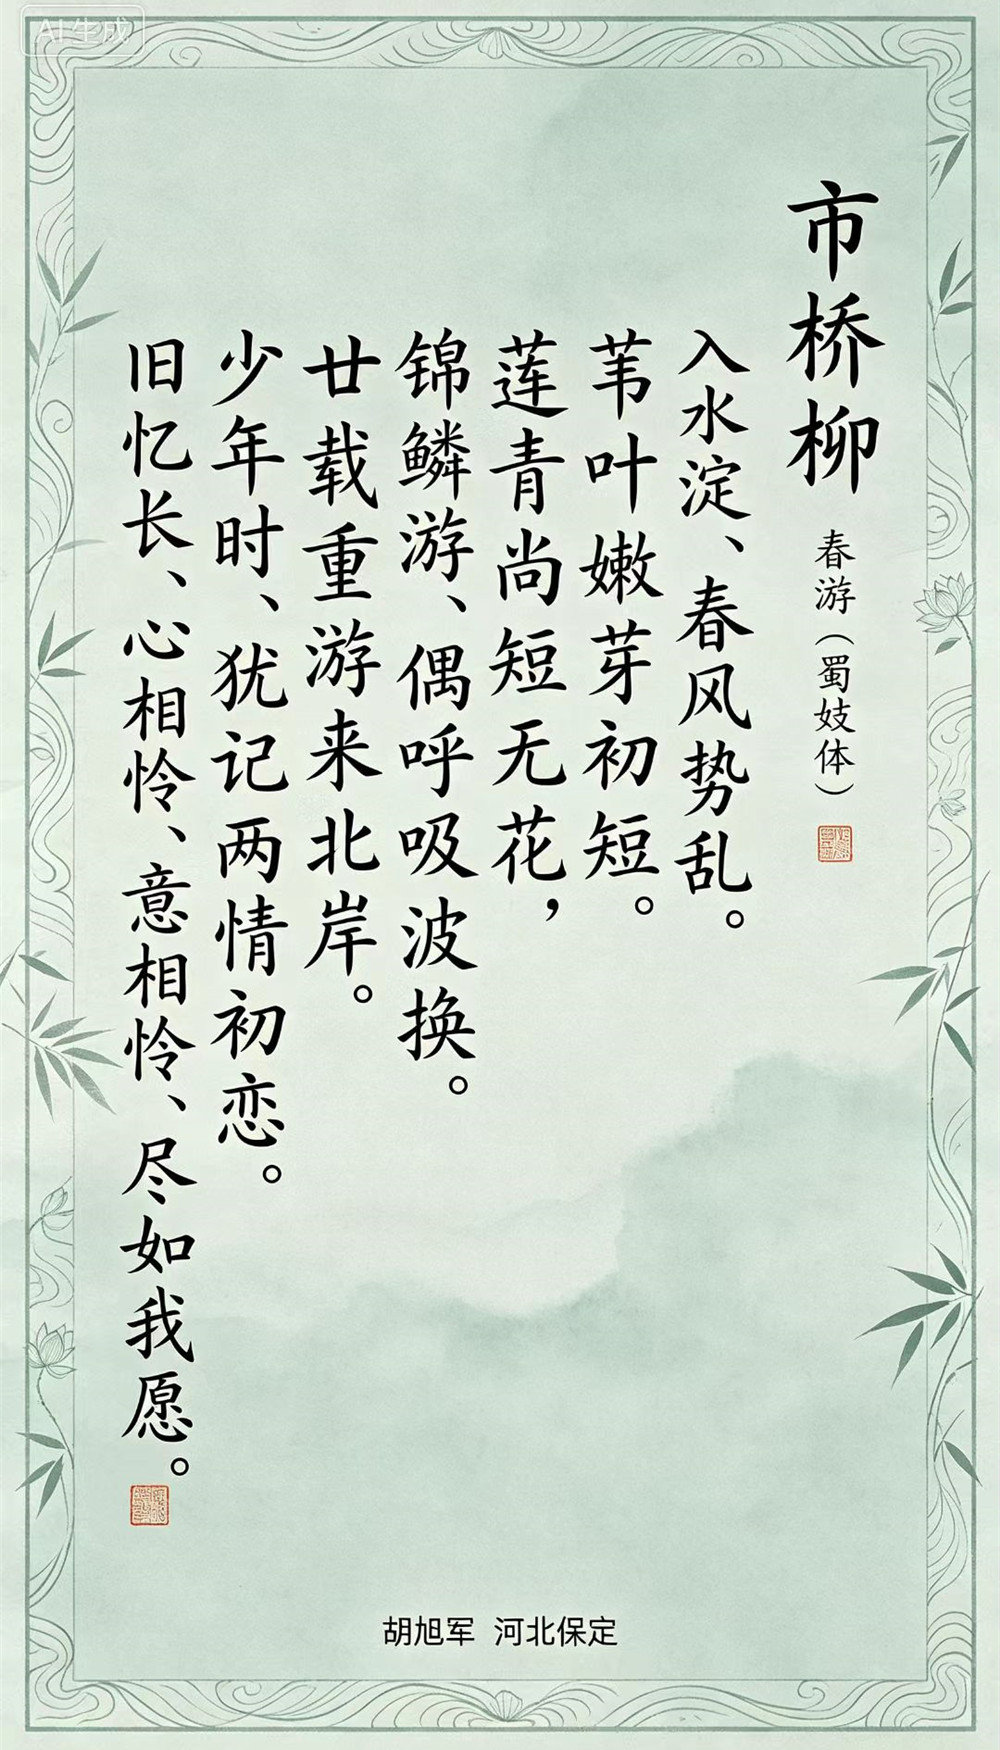 AI生成
市桥柳
春游（蜀妓体）
入水淀、春风势乱。
苇叶嫩芽初短。
莲青尚短无花，
锦鳞游、偶呼吸波换。
廿载重游来北岸。
少年时、犹记两情初恋。
旧忆长、心相怜、意相怜、尽如我愿。
胡旭军 河北保定